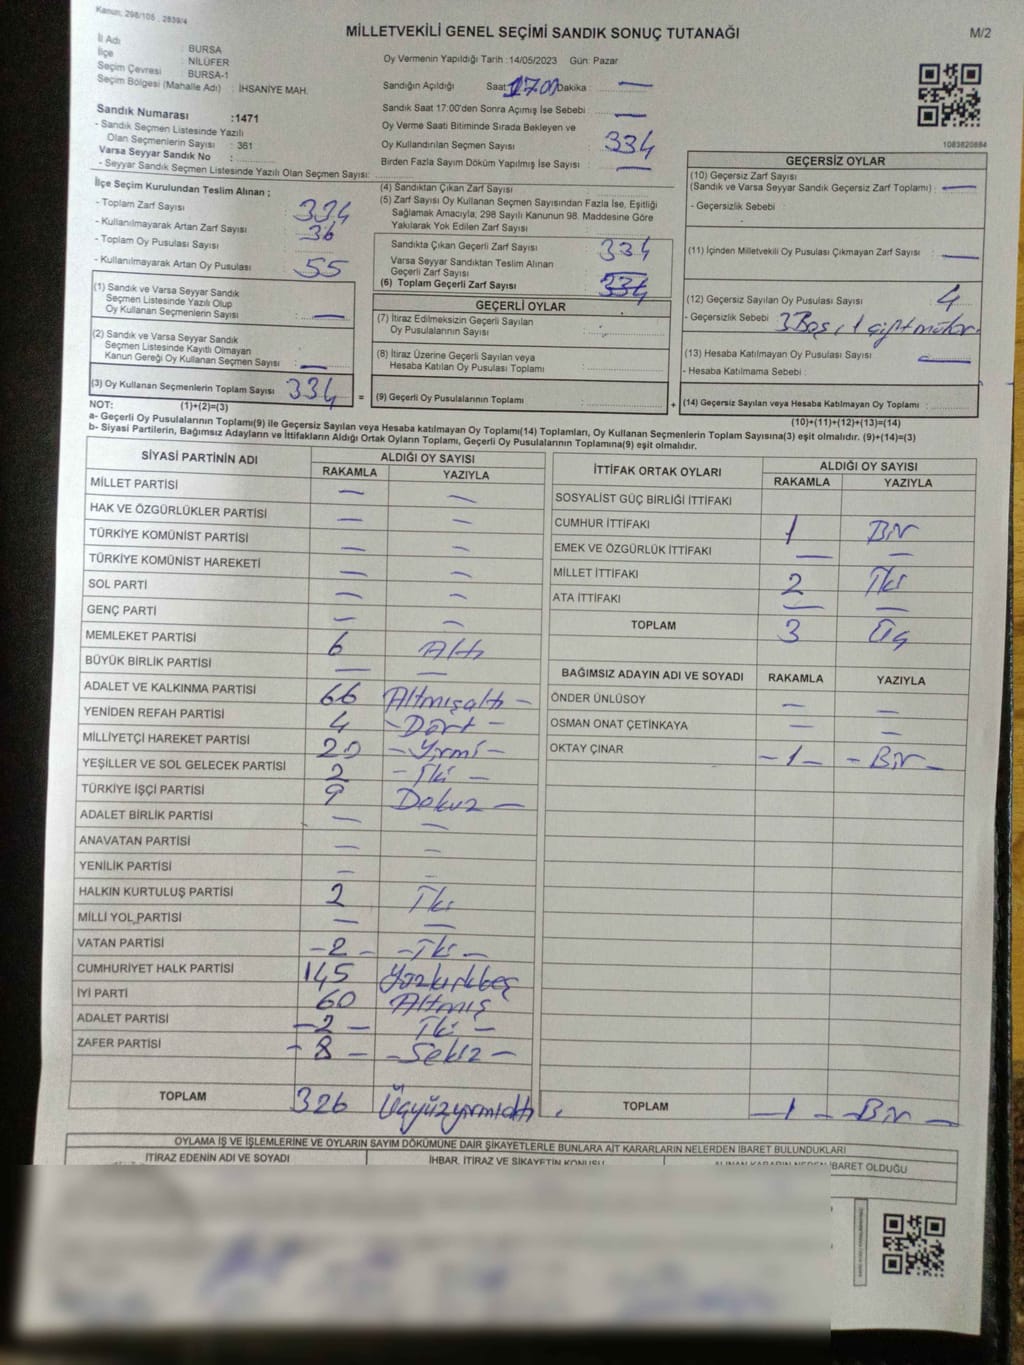 Kanun; 298/105 , 2839/4
MİLLETVEKİLİ GENEL SEÇİMİ SANDIK SONUÇ TUTANAĞI
M/2
İl Adı : BURSA
İlçe : NİLÜFER
Seçim Çevresi : BURSA-1
Seçim Bölgesi (Mahalle Adı) : İHSANİYE MAH.
Sandık Numarası :1471
- Sandık Seçmen Listesinde Yazılı
Olan Seçmenlerin Sayısı : 361
Varsa Seyyar Sandık No :
- Seyyar Sandık Seçmen Listesinde Yazılı Olan Seçmen Sayısı:
Oy Vermenin Yapıldığı Tarih :14/05/2023 Gün: Pazar
Sandığın Açıldığı Saat: 17.00 Dakika : —
Sandık Saat 17:00'den Sonra Açımış İse Sebebi : —
Oy Verme Saati Bitiminde Sırada Bekleyen ve
Oy Kullandırılan Seçmen Sayısı : 334
Birden Fazla Sayım Döküm Yapılmış İse Sayısı : —
1083820884
İlçe Seçim Kurulundan Teslim Alınan ;
- Toplam Zarf Sayısı : 334
- Kullanılmayarak Artan Zarf Sayısı : 36
- Toplam Oy Pusulası Sayısı :
- Kullanılmayarak Artan Oy Pusulası : 55
(1) Sandık ve Varsa Seyyar Sandık
Seçmen Listesinde Yazılı Olup
Oy Kullanan Seçmenlerin Sayısı : —
(2) Sandık ve Varsa Seyyar Sandık
Seçmen Listesinde Kayıtlı Olmayan
Kanun Gereği Oy Kullanan Seçmen Sayısı : —
(3) Oy Kullanan Seçmenlerin Toplam Sayısı : 334
(4) Sandıktan Çıkan Zarf Sayısı :
(5) Zarf Sayısı Oy Kullanan Seçmen Sayısından Fazla İse, Eşitliği
Sağlamak Amacıyla, 298 Sayılı Kanunun 98. Maddesine Göre
Yakılarak Yok Edilen Zarf Sayısı :
Sandıkta Çıkan Geçerli Zarf Sayısı : 334
Varsa Seyyar Sandıktan Teslim Alınan
Geçerli Zarf Sayısı :
(6) Toplam Geçerli Zarf Sayısı : 334
GEÇERLİ OYLAR
(7) İtiraz Edilmeksizin Geçerli Sayılan
Oy Pusulalarının Sayısı :
(8) İtiraz Üzerine Geçerli Sayılan veya
Hesaba Katılan Oy Pusulası Toplamı :
= (9) Geçerli Oy Pusulalarının Toplamı :
GEÇERSİZ OYLAR
(10) Geçersiz Zarf Sayısı
(Sandık ve Varsa Seyyar Sandık Geçersiz Zarf Toplamı) : —
- Geçersizlik Sebebi :
(11) İçinden Milletvekili Oy Pusulası Çıkmayan Zarf Sayısı : —
(12) Geçersiz Sayılan Oy Pusulası Sayısı : 4
- Geçersizlik Sebebi : 3 Boş, 1 çift mühür
(13) Hesaba Katılmayan Oy Pusulası Sayısı : —
- Hesaba Katılmama Sebebi :
+ (14) Geçersiz Sayılan veya Hesaba Katılmayan Oy Toplamı :
NOT: (1)+(2)=(3)
(10)+(11)+(12)+(13)=(14)
a- Geçerli Oy Pusulalarının Toplamı(9) ile Geçersiz Sayılan veya Hesaba Katılmayan Oy Toplamı(14) Toplamları, Oy Kullanan Seçmenlerin Toplam Sayısına(3) eşit olmalıdır. (9)+(14)=(3)
b- Siyasi Partilerin, Bağımsız Adayların ve İttifakların Aldığı Ortak Oyların Toplamı, Geçerli Oy Pusulalarının Toplamına(9) eşit olmalıdır.
SİYASİ PARTİNİN ADI ALDIĞI OY SAYISI
RAKAMLA YAZIYLA
MİLLET PARTİSİ — —
HAK VE ÖZGÜRLÜKLER PARTİSİ — —
TÜRKİYE KOMÜNİST PARTİSİ — —
TÜRKİYE KOMÜNİST HAREKETİ — —
SOL PARTİ — —
GENÇ PARTİ — —
MEMLEKET PARTİSİ 6 Altı
BÜYÜK BİRLİK PARTİSİ — —
ADALET VE KALKINMA PARTİSİ 66 Altmışaltı —
YENİDEN REFAH PARTİSİ 4 - Dört -
MİLLİYETÇİ HAREKET PARTİSİ 20 - Yirmi -
YEŞİLLER VE SOL GELECEK PARTİSİ 2 - İki -
TÜRKİYE İŞÇİ PARTİSİ 9 Dokuz —
ADALET BİRLİK PARTİSİ — —
ANAVATAN PARTİSİ — —
YENİLİK PARTİSİ — —
HALKIN KURTULUŞ PARTİSİ 2 İki
MİLLİ YOL PARTİSİ — —
VATAN PARTİSİ - 2 - - İki -
CUMHURİYET HALK PARTİSİ 145 Yüzkırkbeş
İYİ PARTİ 60 Altmış
ADALET PARTİSİ - 2 - İki -
ZAFER PARTİSİ - 8 - - Sekiz -
TOPLAM 326 Üçyüzyirmialtı
İTTİFAK ORTAK OYLARI ALDIĞI OY SAYISI
RAKAMLA YAZIYLA
SOSYALİST GÜÇ BİRLİĞİ İTTİFAKI
CUMHUR İTTİFAKI 1 Bir
EMEK VE ÖZGÜRLÜK İTTİFAKI — —
MİLLET İTTİFAKI 2 İki
ATA İTTİFAKI — —
TOPLAM 3 Üç
BAĞIMSIZ ADAYIN ADI VE SOYADI RAKAMLA YAZIYLA
ÖNDER ÜNLÜSOY — —
OSMAN ONAT ÇETİNKAYA — —
OKTAY ÇINAR - 1 - - Bir -
TOPLAM - 1 - - Bir -
OYLAMA İŞ VE İŞLEMLERİNE VE OYLARIN SAYIM DÖKÜMÜNE DAİR ŞİKAYETLERLE BUNLARA AİT KARARLARIN NELERDEN İBARET BULUNDUKLARI
İTİRAZ EDENİN ADI VE SOYADI İHBAR, İTİRAZ VE ŞİKAYETİN KONUSU ALINAN KARARIN NEDEN İBARET OLDUĞU